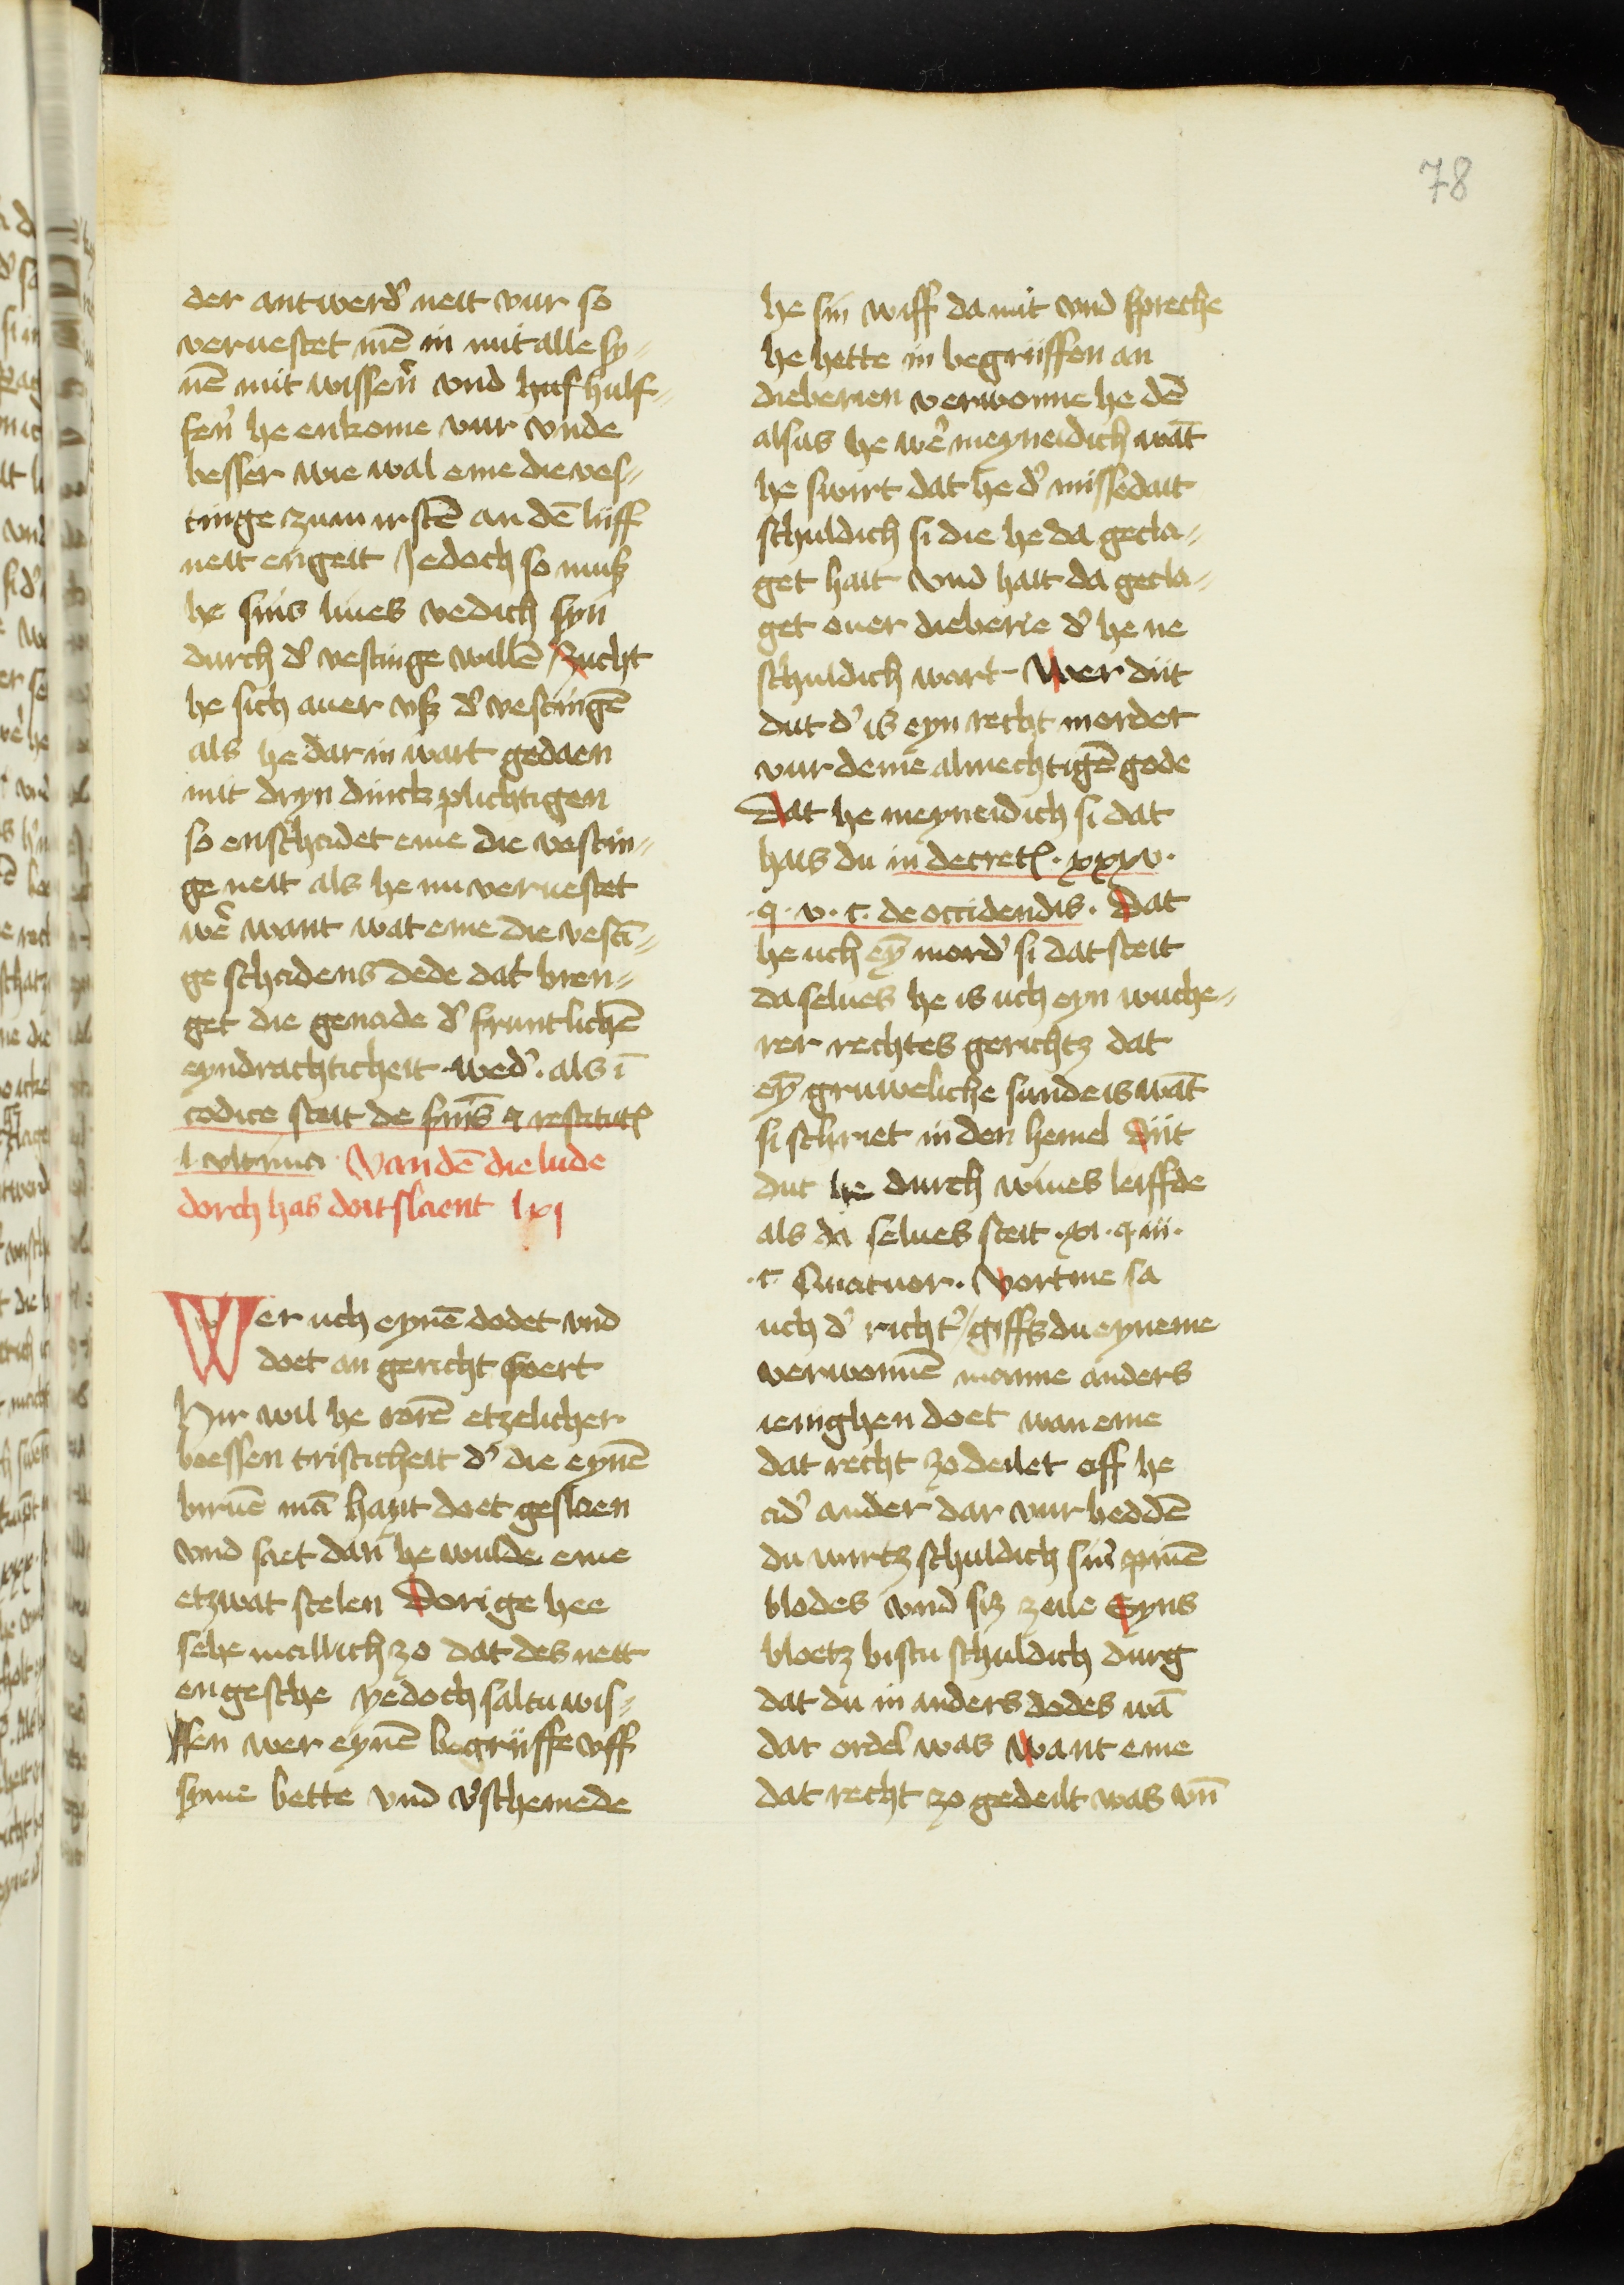 78
der antwerd' neit vur so
veruestet mē in mit alle sy=
nē mit wissen' vnd huf hulf=
fen' he enkome vur vnde
besser wie wal eme die ves=
tinge zum irstē an dē liiff
neit engeit Jedoch so muß
he sins liues vedich syn
durch d' vestinge willē Zucht
he sich auer vß d' vestingē
als he dar in wart gedaen
mit dryn dinck plichtigen
so enscheidet eme die vestin=
ge neit als he nu veruestet
wē' want wat eme die vestī=
ge schadens dede dat bren=
get die genade d' fruntlichē
eyndrachticheit wed'. als ī
codice steit de
l vltima Van dē die lude
dorch has doit slaent lxj
Wer uch eynē dodet vnd
doet an gericht voert
Hir wil he rorē etzelicher
boessen tristicheit d' die eynē
biruē mā hayt doet geslaen
vnd saet dan he wulde eme
etzwat stelen Dorige hee
sehe mallich zo dat des nett
en gesche yedoch saltu wis=
ssen wer eynē begriiffe vff
syme bette vnd v'schemede
he sin wiff da mit vnd spreche
he hette in begriiffen an
dieberien verwonne he dē
alsus he wē' meyneidich wāt
he swirt dat he d' missedait
schuldich si die he da gecla=
get hait vnd hait da gecla=
get ouer dieberie d' he ne
schuldich wart Wer diit
dut d' is eyn recht morder
vur deme almechtigē gode
Dat he meyneidich si dat
hais du in decret. xxxv.
.q. v. c. de occidendis. Dat
he uch ey mord' si dat steit
da selues he is uch eyn wuche=
rer rechtes gerichtz dat
ey gruweliche sunde is wāt
si schriet in den hemel Diit
dut he durch wiues leiffde
als da selues steit .xi. q. iii.
.c. Quatuor. Vort me sa
uch d' richt' giffs du eyneme
verwonnē manne anders
ienighen doet wan eme
dat recht zo deilet off he
ad' ander dar vur beddē
du wirtz schuldich sin'
blodes vnd siz zeile Syns
bloetz bistu schuldich durg
dat du in anders dodes wā
dat ordel was Want eme
dat recht zo gedeilt was vn̄